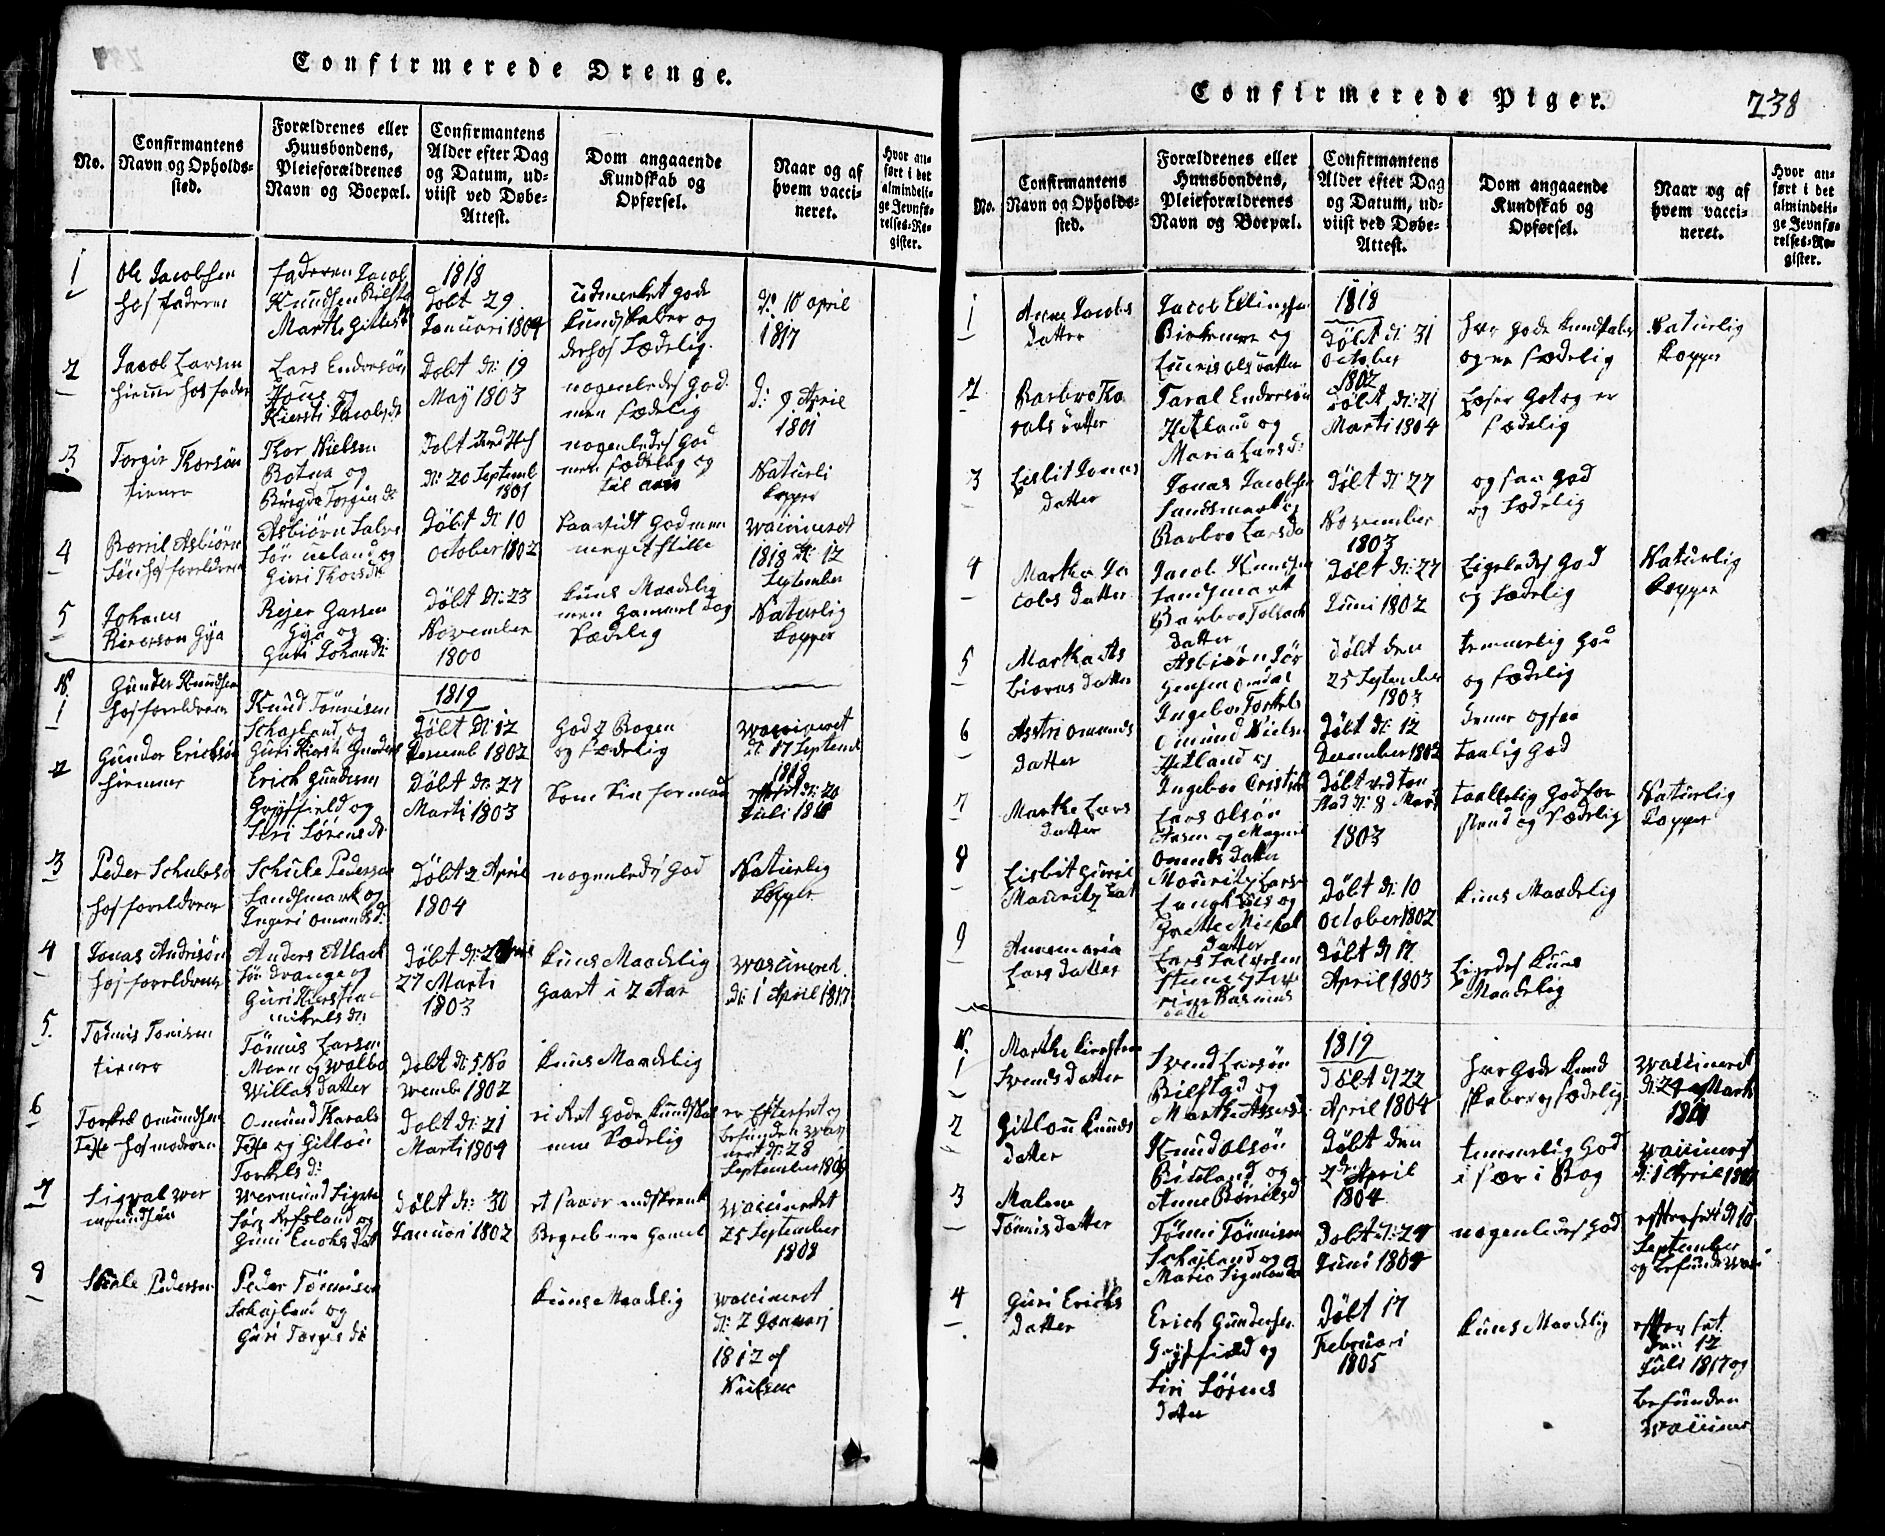 Confirmerede Drenge.
No.
Confirmantens
Navn og Opholds-
sted.
Forældrenes eller
Huusbondens,
Pleieforældrenes
Navn og Boepæl.
Confirmantens
Alder efter Dag
og Datum, ud-
viist ved Døbe-
Attest.
Dom angaaende
Kundskab og
Opførsel.
Naar og af
hvem vacci-
neret.
Hvor an-
ført i det
almindeli-
ge Jevnfø-
relses-Re-
gister.
1
Ole Jacobsen
hos faderen
faderen Jacob
Knudsen Bilsta
Marthe Gittes d:
1818
Dobt 29
Januari 1804
udmerket gode
kundskaber og
derhos Sædelig.
d: 10 april
1817
2
Jacob Larsen
hiemme hos fader
Lars Endresøn
Houe og
Kiersti Jacobs d:
Dobt d: 19
May 1803
nogenledes god
men sædelig
d: 9 April
1801
3
Torgir Thorsøn
tienere
Thor Nielsen
Botna og
Birgda Torgirs d:
d: 20 Septemb
1801
nogenledes god
men sædelig og
til
Naturli
kopper
4
Børril Asbiørn
Søn hos foreldrene
Asbiørn Salve
søn ueland og
Guri Thors d:
Døbt d: 10
October 1802
Saavidt god men
meget stille
waccineret
1818 d: 12
September
5
Johanes
Reierson Gya
Rejer Garsen
Gya og
Guri Johan d:
Døbt d: 23
November
1800
kuns Maadelig
men gammel dog
Sædelig
Naturlig
kopper
N.
1
Gunder Knudsen
hos foreldrene
Knud Tønnisen
Schajland og
Guri Kirsti Gunders
1819
Døbt d: 12
Desemb 1802
God i Bogen
og sædelig
waccineret
d: 17 Septemb
1818
2
Gunder Ericksøn
hiemme
Erich Gundersen
Grøsfield og
Siri Sørens d:
Døbt d: 27
Marti 1803
Som Sin formand
efterset d: 20
Juli 1818
3
Peder Schulesø
hos foreldrene
Schule Pedersen
Landsmark og
Ingeri Omunds d:
Døbt 2 April
1804
nogenledes God
Naturlig
kopper
4
Jonas Andrisøn
hos foreldrene
Anders Atlack
søn drange og
Guri Kirstin
mikels d:
27 Marti
1803
kuns Maadelig
Gaart i 2 Aar
waccineret
d: 1 April 1817
5.
Tønnis Tønisen
tienere
Tønnis Larsen
Moen og Walbo
Willas datter
Døbt d: 5 No
vemb 1802
kuns Maadelig
6
Torkel Omundsen
Tesse hos moderen
Omund Tharals
Tesse og Gitlou
Torkels d:
Dobt d: 21
Marti 1804
ricket gode kundskab
men Sædelig
er Efterset og
befunden wac
neret d: 28
September 1809
7
Sigval Wer
mundsøn
Wermund Sigva
søn Refsland og
Guni Enoks dat
Døbt d: 30
Januari 1802
et saare indskrenk
Begreb men gamel
waccineret
25 September
1808
8
Skule Pedersen
Peder Tønnisen
Schajland og
Guri Torgis d:
kuns Maadelig
waccineret
d: 2 Januarj
1812 af
Nielsen
Confirmerede Piger.
238
No.
Confirmantens
Navn og Opholds-
sted.
Forældrenes eller
Huusbondens,
Pleieforældrenes
Navn og Boepæl.
Confirmantens
Alder efter Dag
og Datum, ud-
viist ved Døbe-
Attest.
Dom angaaende
Kundskab og
Opførsel.
Naar og af
hvem vacci-
neret.
Hvor an-
ført i det
almindeli-
ge Jevnfø-
relses-Re-
gister.
1
Anne Jacobs
datter
Jacob Ellingsen
Birkemoe og
Lucris Ols datter
1818
Døbt d: 31
October
1802
har gode kundskaber
og er sædelig
Naturlig
kopper
2
Barbro Ta
rals datter
Taral Endresøn
Hetland og
Maria Lars d:
Døbt d: 21
Marti 1804
Læser Got og er
Sædelig
3
Lisbit Jonas
datter
Jonas Jacobsen
Landsmark og
Barbro Lars da
Døbt d: 27
November
1803
og saa god
og Sædelig
4
Martha Ja
cobs datter
Jacob Knudsen
Landsmark
Barbro Tollack
datter
Døbt d: 27
Juni 1802
Ligeledes God
og Sædelig
Naturlig
kopper
5
Martha As
biørns datter
Asbiøøn Jør
gensen Omdal
Ingebor Torkels
Døbt den
25 September
1803
temmerlig God
og sædelig
6
Astri Omunds
datter
Omund Nielsen
Hetland og
Ingebor Cristi
Døbt d: 12
December 1802
denne ogsaa
taalig God
7
Marthe Lars
datter
Lars Olsøn
Aasen og Magnil
Omunds datter
1803
taallelig God for
stand og Sædelig
Naturlig
kopper
8
Lisbit Guril
Mouritz Dat
Mouritz Larse
og
Grette Mickel
datter
Døbt d: 10
October 1802
kuns Maadelig
9
Annemaria
Lars datter
Lars Salvesen
Steene og Seve
rine Rasmus
datte
Døbt d: 17
April 1803
Ligeledes kuns
Maadelig
N.
1
Marthe Kirstine
Svends datter
Svend Larsøn
Bilstad og
Marthe Assers d
1819
Døbt d: 22
April 1804
har gode kund
skaber og Sædelig
waccineret
d: 24 Marti
2
Gitlou Knuds
datter
Knud Olsøn
og
Anne Børrils d
Døbt den
2de April
1804
temmerlig God
i sær i Bog
waccineret
d: 1 April
3
Malene
Tønnis datter
Tønni Tønnisen
Schajland og
Maria Sigmund
Dobt d: 29
Juni 1804
nogenledes God
efterset d: 10
September
og befunden vac
4
Guri Erichs
datter
Erich Gundersen
Grøsfield og
Siri Sørens
datter
Døbt 17
Februari
1805
kuns Maadelig
efterset
den 12
Juli 1817 og
befunden
waccineret